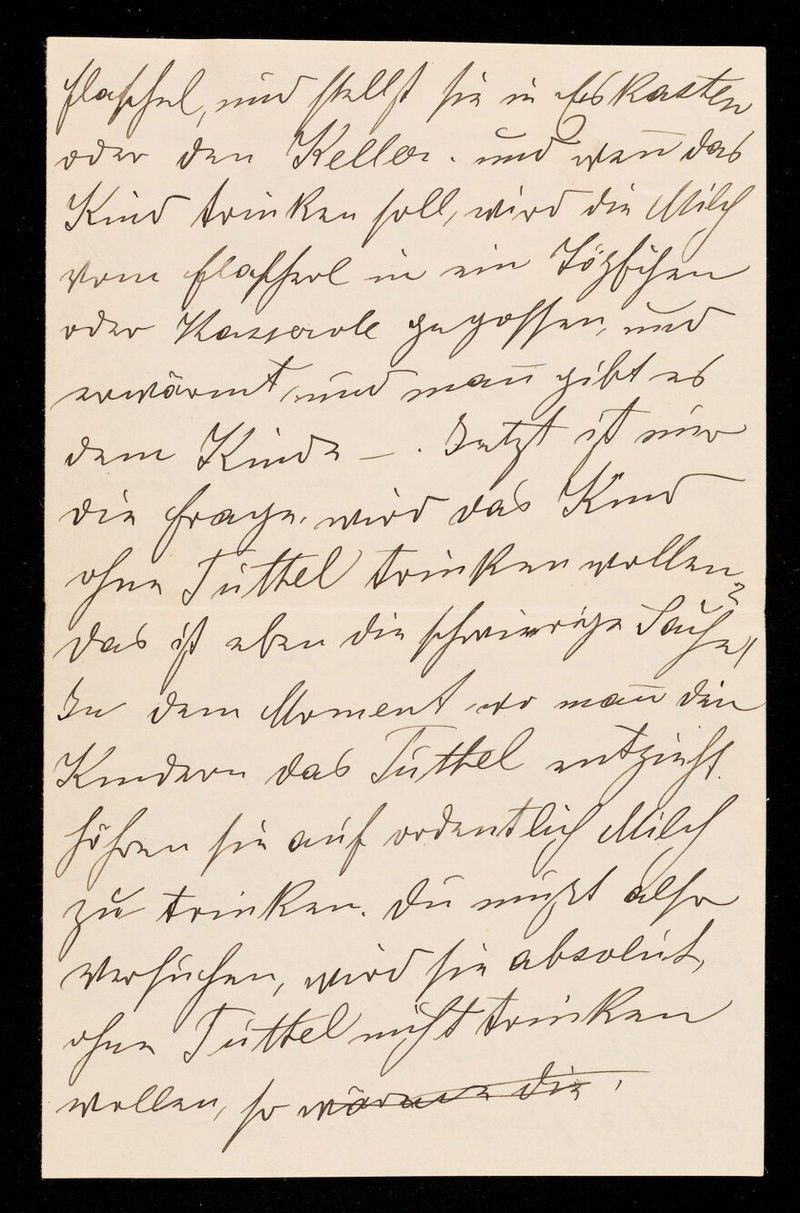 flaschel, und stellst sie in Eskasten
oder den Keller. und wen̄ das
Kind trinken soll, wird die Milch
vom flascherl in ein Töpfchen
oder Kasserole gegossen, und
erwärmt, und man̄ gibt es
dem Kinde —. Jetzt ist nur
die frage, wird das Kind
ohne Tuttel trinken wollen?
das ist eben die schwierige Sache!
In dem Moment, wo man̄ den
Kindern das Tuttel entzieht.
höhren sie auf ordentlich Milch
zu trinken. du mußt also
versuchen, wird sie absolut,
ohne Tuttel nicht trinken
wollen, so wärme die.